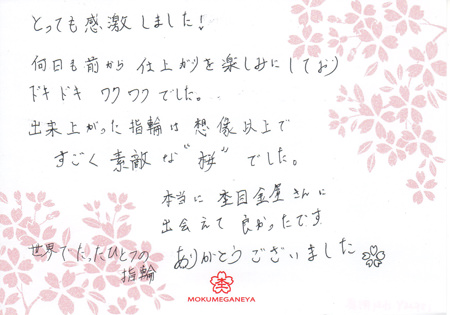 とっても感激しました!
何日も前から仕上がりを楽しみにしており
ドキドキ ワクワクでした。
出来上がった指輪は想像以上で
すごく素敵な"桜"でした。
本当に杢目金屋さんに
出会えて良かったです
世界でたったひとつの
指輪
ありがとうございました
MOKUMEGANEYA